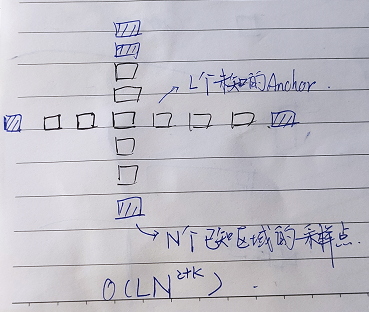 L个未知的Anchor.
N个已知区域的采样点.
O(LN^{2+K}).